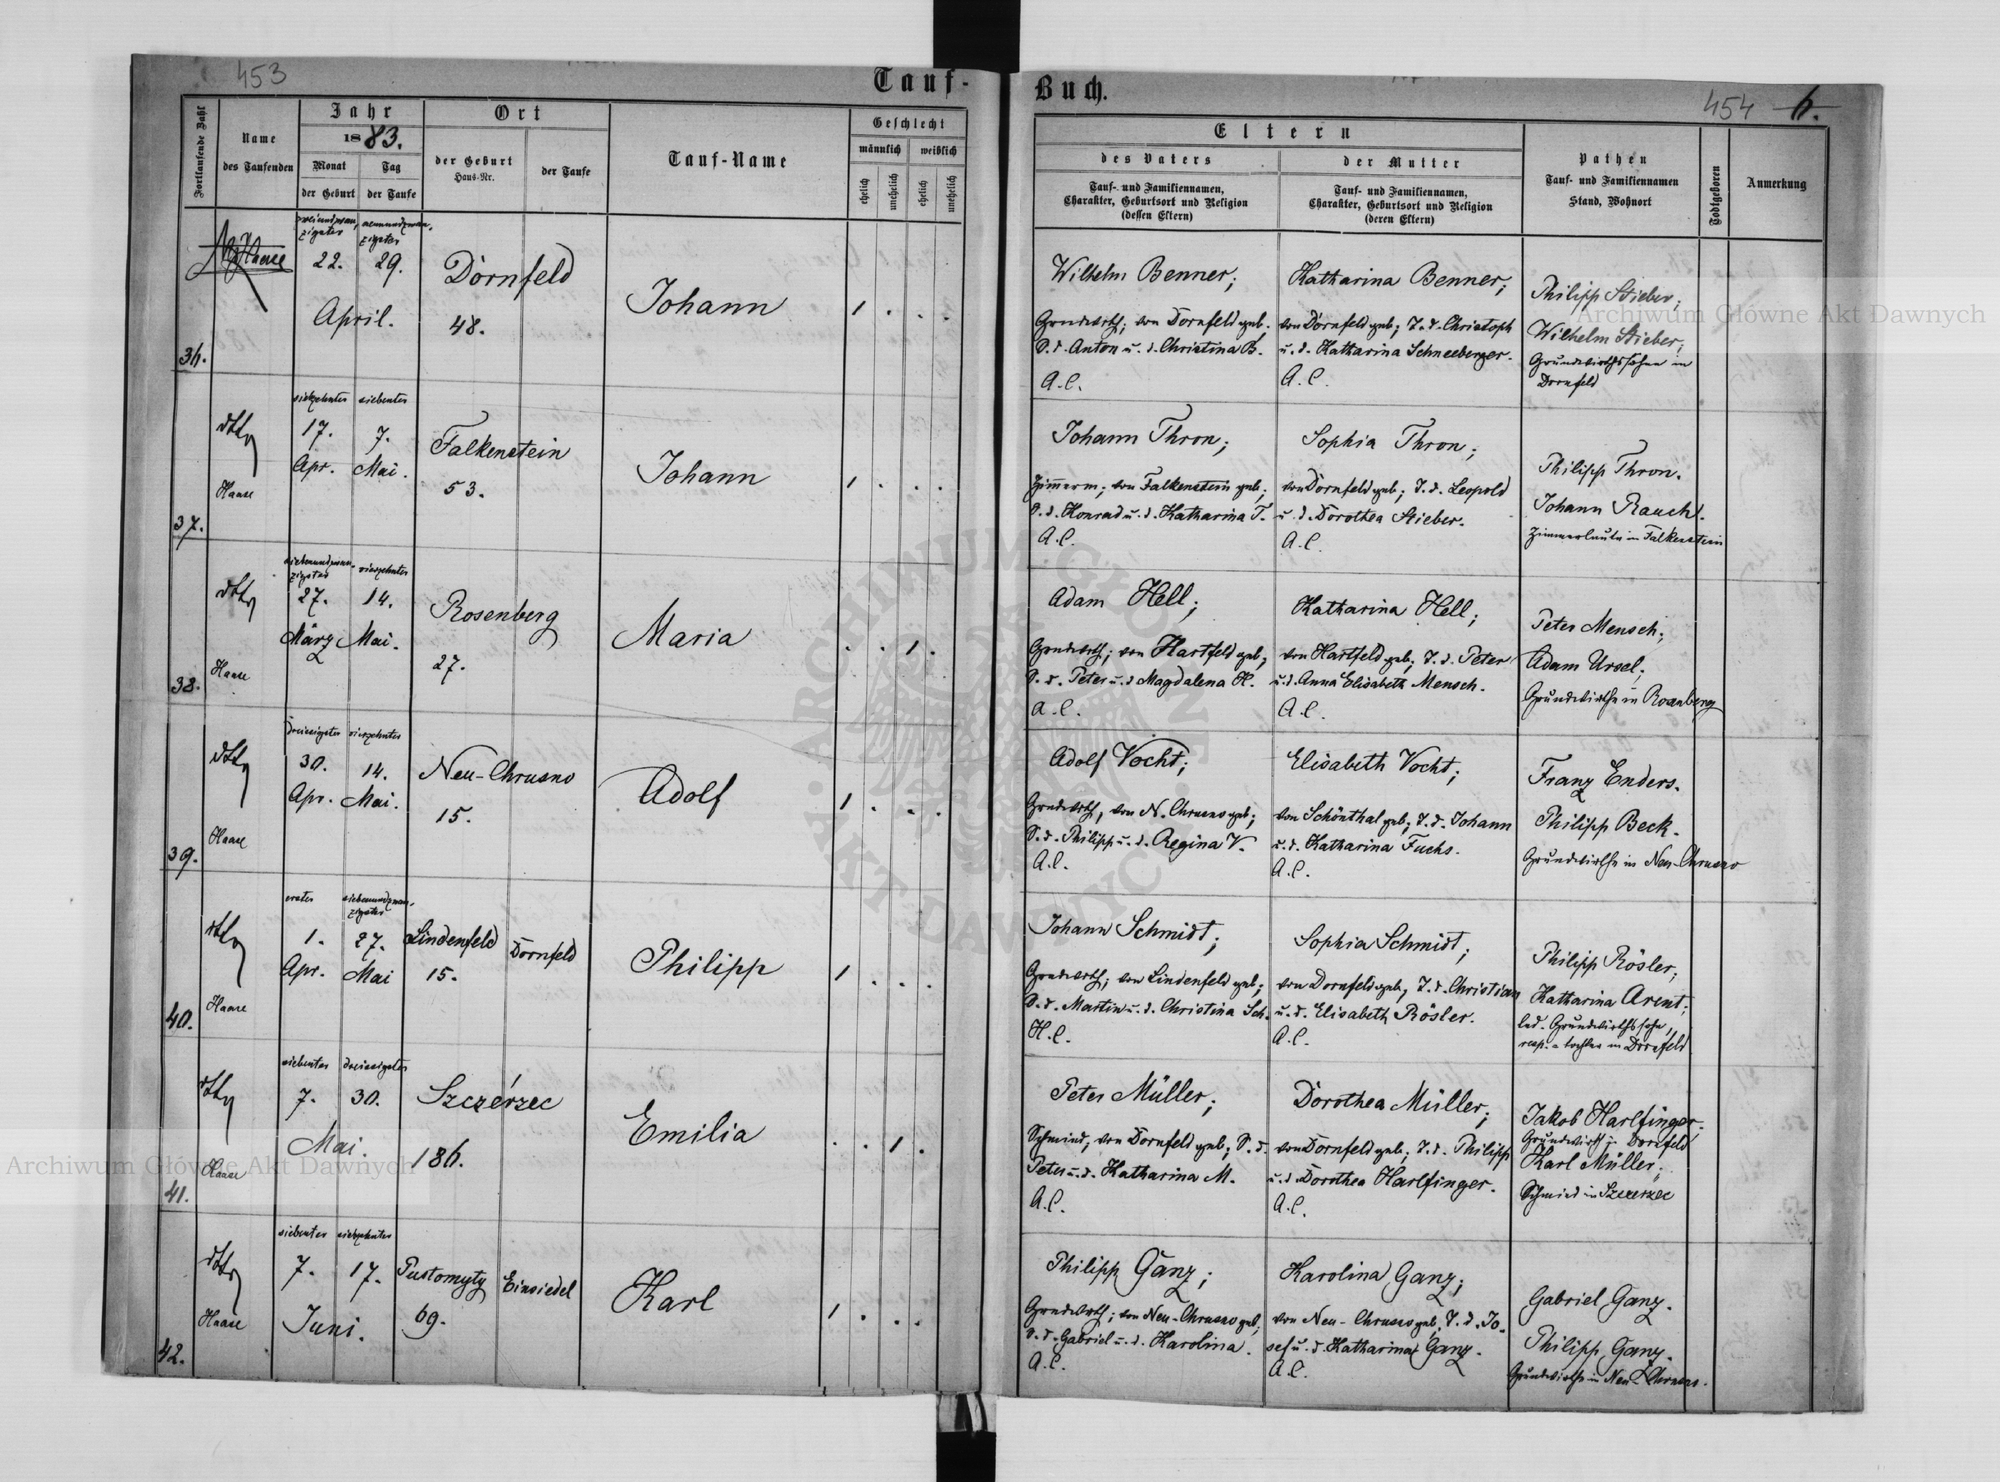 453
Tauf-
Buch.
454 6.
Fortlaufende Zahl
Name
des Taufenden
Jahr
1883.
Monat
der Geburt
Tag
der Taufe
Ort
der Geburt
Haus-Nr.
der Taufe
Tauf-Name
Geschlecht
männlich
weiblich
ehelich
unehelich
ehelich
unehelich
Eltern
des Vaters
Tauf- und Familiennamen,
Charakter, Geburtsort und Religion
(dessen Eltern)
der Mutter
Tauf- und Familiennamen,
Charakter, Geburtsort und Religion
(deren Eltern)
Pathen
Tauf- und Familiennamen
Stand, Wohnort
Todtgeboren
Anmerkung
36.
Haase
zweiundzwan-
zigster
22.
neunundzwan-
zigster
29.
April.
Dornfeld
48.
Johann
1 . . .
Wilhelm Benner;
Grndwrth; von Dornfeld geb.
S. d. Anton u. d. Christina B.
A. C.
Katharina Benner;
von Dornfeld geb; T. d. Christoph
u. d. Katharina Schneeberger.
A. C.
Philipp Stieber;
Wilhelm Stieber;
Grundwirthssöhne in
Dornfeld
37.
dtto
Haase
siebzehnter
17.
Apr.
siebenter
7.
Mai.
Falkenstein
53.
Johann
1 . . .
Johann Thron;
Zimmerm; von Falkenstein geb;
S. d. Konrad u. d. Katharina T.
A. C.
Sophia Thron;
von Dornfeld geb; T. d. Leopold
u. d. Dorothea Stieber.
A. C.
Philipp Thron.
Johann Rauch.
Zimmerleute in Falkenstein
38.
dtto
Haase
siebenundzwan-
zigster
27.
März
vierzehnter
14.
Mai.
Rosenberg
27.
Maria
. . 1 .
Adam Hell;
Grndwrth; von Hartfeld geb;
S. d. Peter u. d. Magdalena H.
A. C.
Katharina Hell;
von Hartfeld geb; T. d. Peter
u. d. Anna Elisabeth Mensch.
A. C.
Peter Mensch;
Adam Ursel;
Grundwirthe in Rosenberg
39.
dtto
Haase
dreissigster
30.
Apr.
vierzehnter
14.
Mai.
Neu-Chrusno
15.
Adolf
1 . . .
Adolf Vocht;
Grndwrth, von N. Chrusno geb;
S. d. Philipp u. d. Regina V.
A. C.
Elisabeth Vocht;
von Schönthal geb; T. d. Johann
u. d. Katharina Fuchs.
A. C.
Franz Enders.
Philipp Beck.
Grundwirthe in Neu-Chrusno
40.
dtto
Haase
erster
1.
Apr.
siebenundzwan-
zigster
27.
Mai
Lindenfeld
15.
Dornfeld
Philipp
1 . . .
Johann Schmidt;
Grndwrth; von Lindenfeld geb;
S. d. Martin u. d. Christina Sch.
H. C.
Sophia Schmidt;
von Dornfeld geb, T. d. Christian
u. d. Elisabeth Rösler.
A. C.
Philipp Rösler;
Katharina Arent;
led. Grundwirthssohn,
resp. -tochter in Dornfeld
41.
dtto
Haase
siebenter
7.
dreissigster
30.
Mai.
Szczérzec
186.
Emilia
. . 1 .
Peter Müller;
Schmied; von Dornfeld geb; S. d.
Peter u. d. Katharina M.
A. C.
Dorothea Müller;
von Dornfeld geb; T. d. Philipp
u. d. Dorothea Harlfinger.
A. C.
Jakob Harlfinger.
Grundwirth in Dornfeld
Karl Müller;
Schmied in Szczerzec
42.
dtto
Haase
siebenter
7.
siebzehnter
17.
Juni.
Pustomyty
69.
Einsiedel
Karl
1 . . .
Philipp Ganz;
Grndwrth; von Neu-Chrusno geb;
S. d. Gabriel u. d. Karolina.
A. C.
Karolina Ganz;
von Neu-Chrusno geb, T. d. Jo-
sef u. d. Katharina Ganz.
A. C.
Gabriel Ganz.
Philipp Ganz.
Grundwirthe in Neu-Chrusno.
Archiwum Główne Akt Dawnych
Archiwum Główne Akt Dawnych
ARCHIWUM GŁÓWNE AKT DAWNYCH